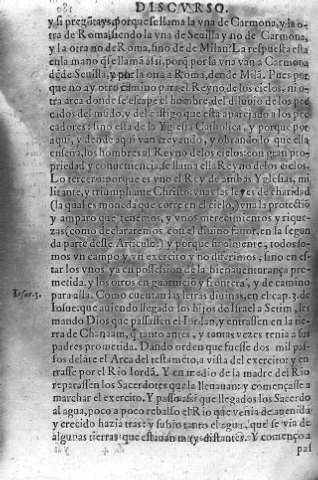 DISCVRSO.
y si preguntays, porque se llama la vna de Carmona, y la o-
tra de Roma, siendo la vna de Seuilla y no de Carmona,
y la otra no de Roma, sino de de Milan? La respuesta esta
en la mano que se llama assi, porq̃ por la vna van a Carmona
de de Seuilla, y por la otra a Roma, desde Milã. Pues por
que no ay otro camino para el Reyno de los cielos, ni o-
tra arca donde se escape el hombre, del diluuio de los pe-
cados del mũdo, y del castigo que esta aparejado a los pe-
cadores: sino esta de la Yglesia Catholica, y porque por
aqui, y dende aqui van creyendo, y obrando lo que ella
enseña, los hombres al Reyno de los cielos: con gran pro-
priedad y conueniencia, se llama ella Reyno de los cielos.
Lo tercero: porque es vno el Rey de ambas Yglesias, mi-
litante, y triumphante Christo: vnas las leyes de charidad
(la qual es moneda que corre en el cielo,) vna la protectiõ
y amparo que tenemos, y vnos merecimientos y rique-
zas, como declararemos con el diuino fauor, en la segun-
da parte deste Articulo: y porque finalmente, todos so-
mos vn campo y vn exercito y no diferimos, sino en es-
tar los vnos ya en possession de la bienauenturança pro-
metida, y los otros en guarnicio y frontera, y de camino
para alla. Como cuentan las letras diuinas, en el cap. 3. de
Iosue. 3.
Iosue: que auiendo llegado los hijos de Israel a Setim, les
mando Dios que passassen el Iordan, y entrassen en la tie-
rra de Chanaam, q̃ tanto antes, y tantas vezes tenia a sus
padres prometida. Dando orden que fuesse dos mil pas-
sos delãte el Arca del testamẽto, a vista del exercito: y en-
trasse por el Rio Iordã. Y en medio de la madre del Rio
reparassen los Sacerdotes que la lleuauan: y començasse a
marchar el exercito. Y passo assi que llegados los Sacerdo
al agua, poco a poco rebalso el Rio que venia de auenida
y crecido hazia tras: y subio tanto el agua, que se via de
algunas tierras que estauan muy distantes. Y començo a
pas